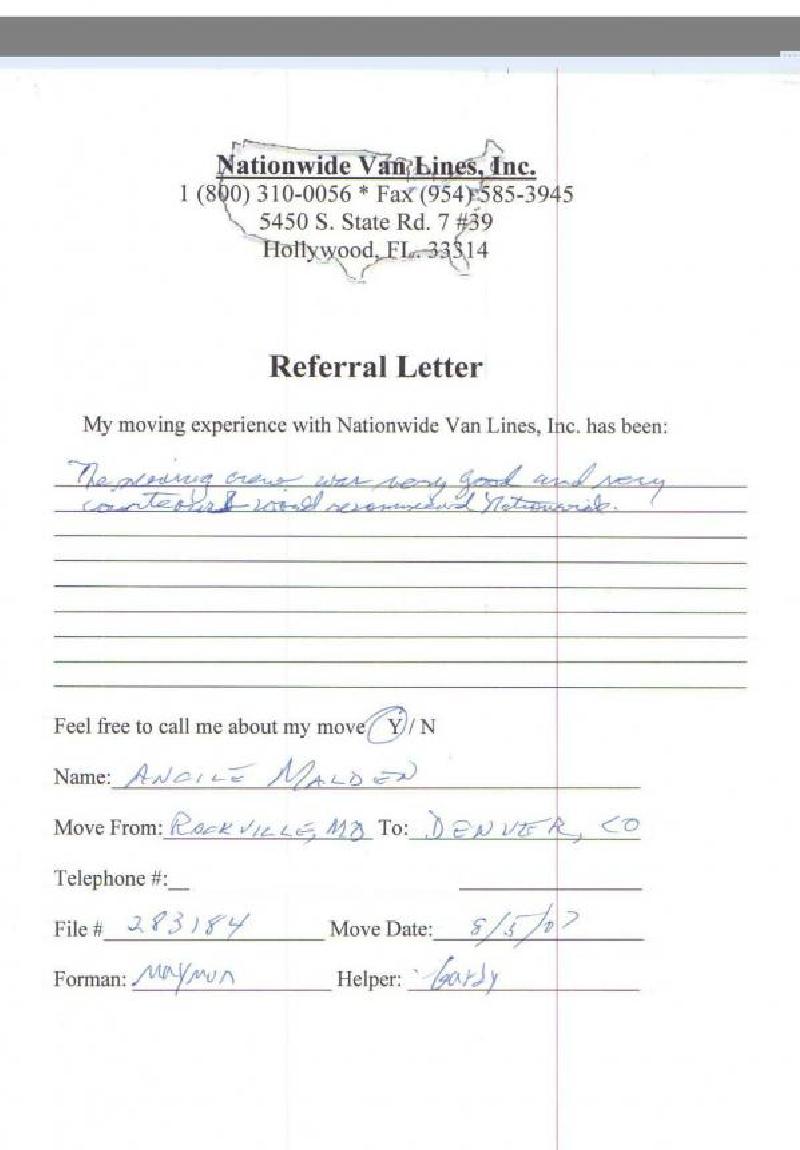 Nationwide Van Lines, Inc.
1 (800) 310-0056 * Fax (954) 585-3945
5450 S. State Rd. 7 #39
Hollywood, FL. 33314
Referral Letter
My moving experience with Nationwide Van Lines, Inc. has been:
The moving crew was very good and very
courteous I would recommend Nationwide.
Feel free to call me about my move Y / N
Name: ANCILE MALDEN
Move From: ROCKVILLE, MD To: DENVER, CO
Telephone #:
File # 283184 Move Date: 8/5/07
Forman: Maymon Helper: